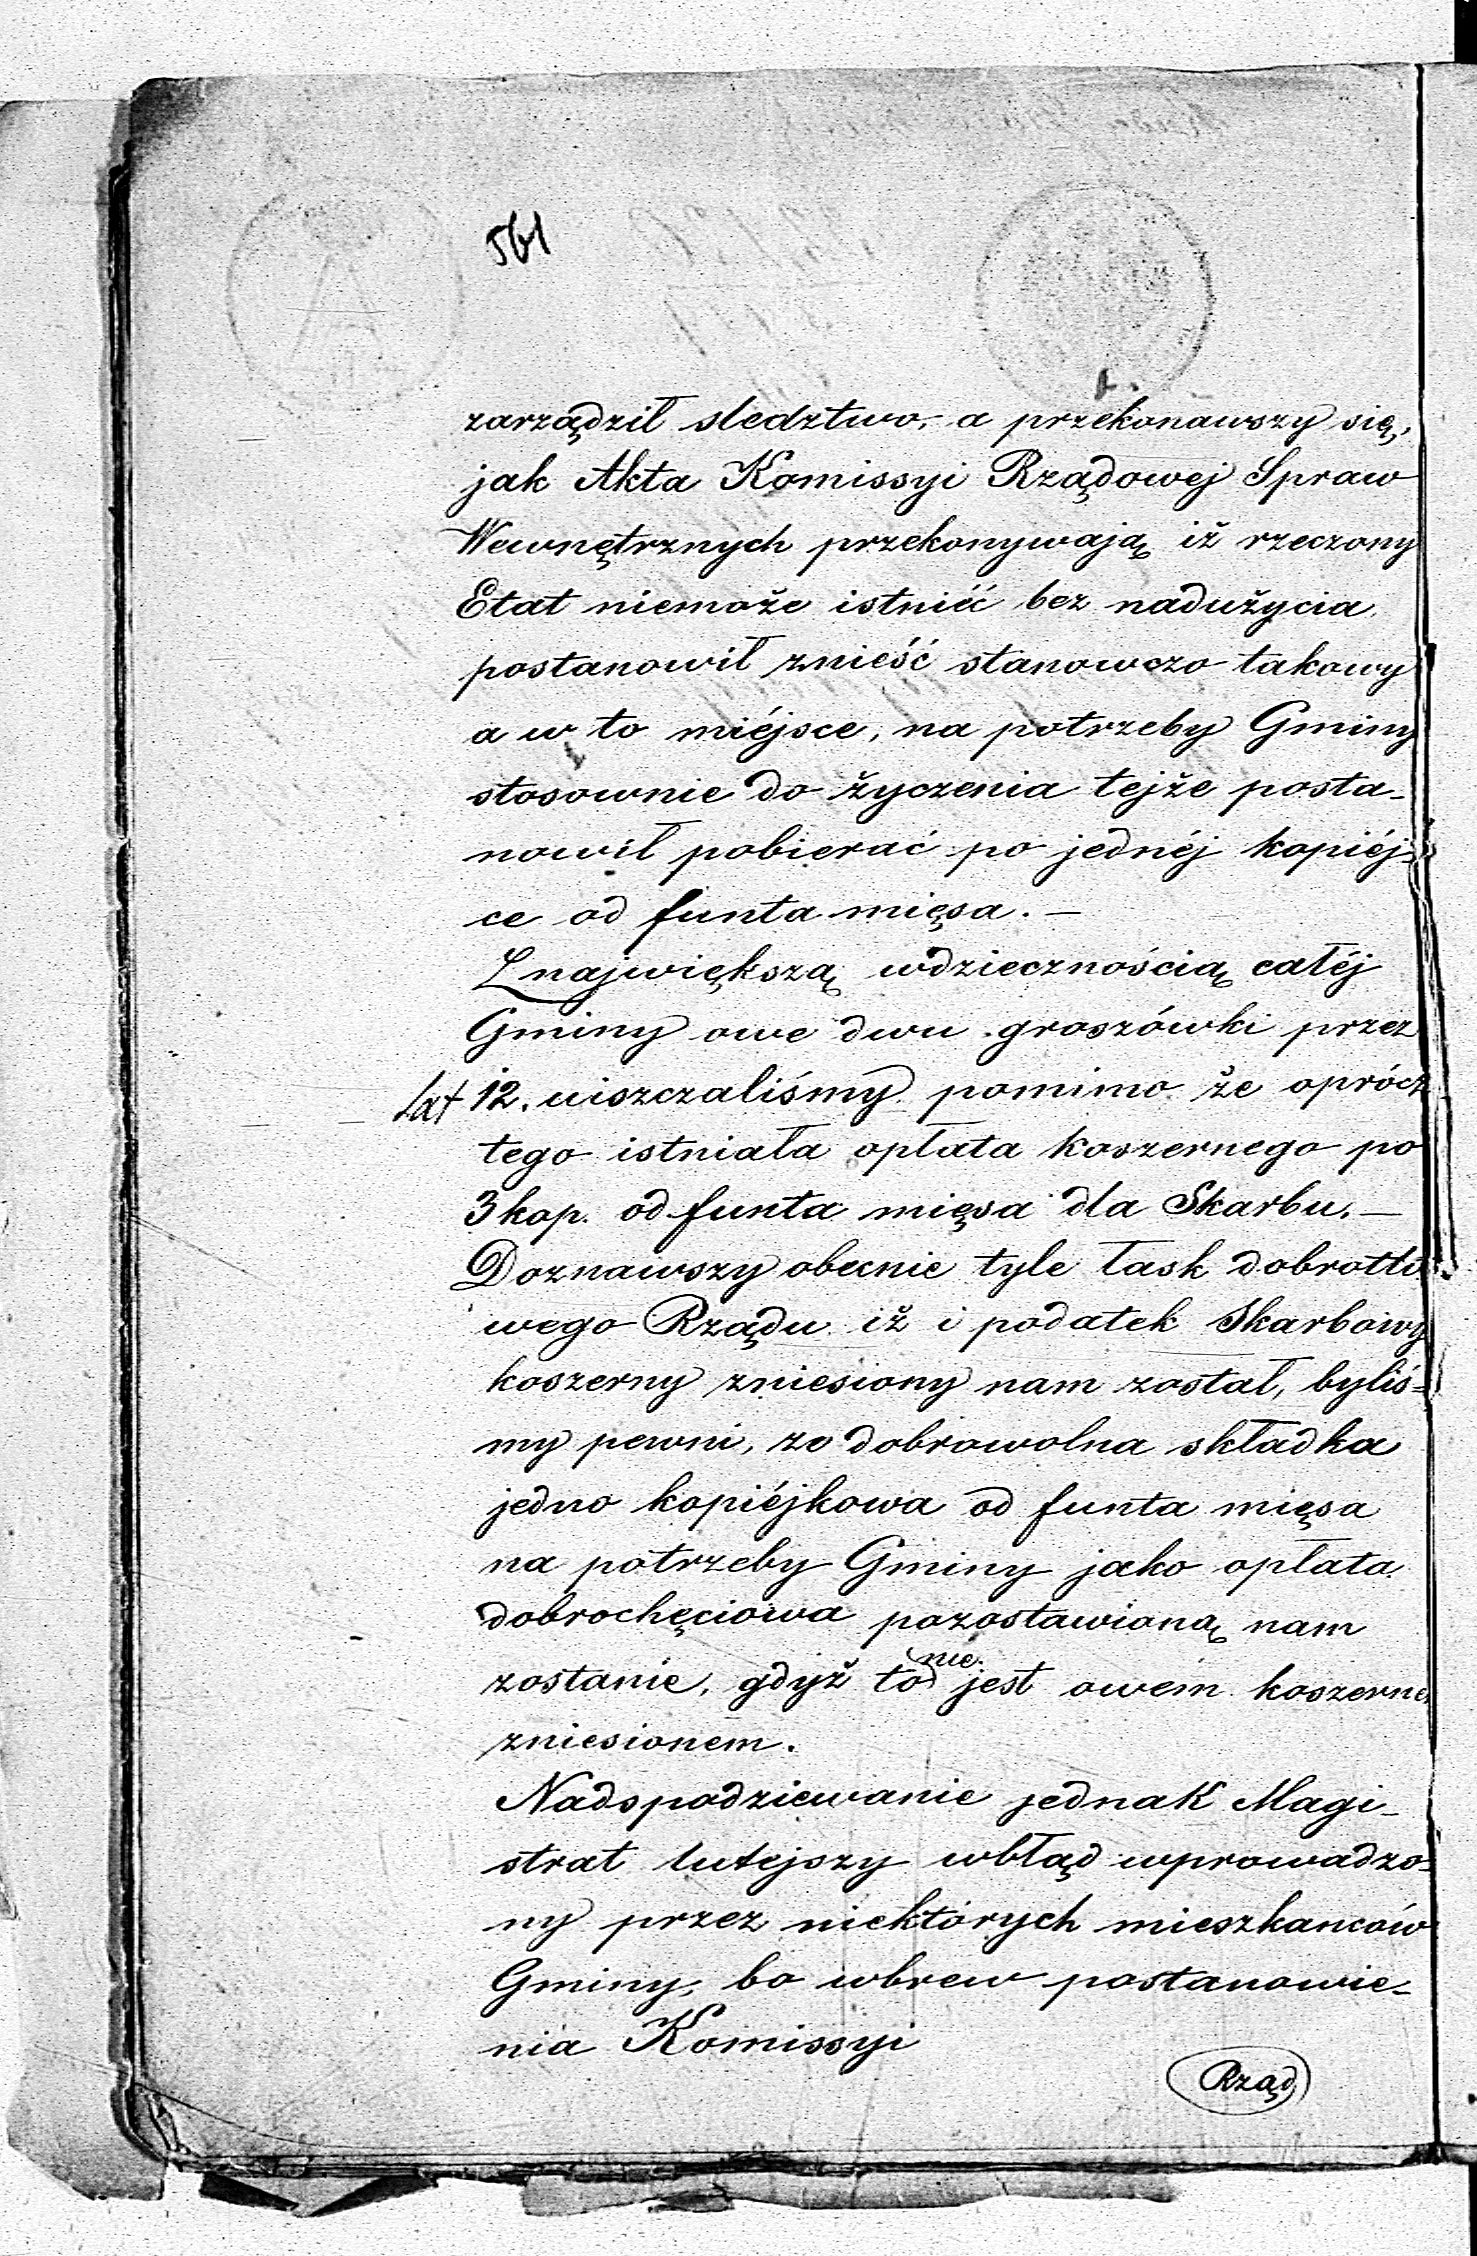 561
zarządził sledztwo, a przekonawszy się,
jak Akta Komissyi Rządowej Spraw
Wewnętrznych przekonywają iż rzeczony
Etat niemoże istniéć bez nadużycia,
postanowił znieść stanowczo takowy
a w to miéjsce, na potrzeby Gminy
stosownie do życzenia tejże posta-
nowił pobierać po jednéj kopiéj-
ce od funta mięsa. —
Z największą wdziecznością całéj
Gminy owe dwu groszówki przez
lat 12. uiszczaliśmy pomimo że oprócz
tego istniała opłata koszernego po
3 kop. od funta mięsa dla Skarbu. —
Doznawszy obecnie tyle łask dobrotli
wego Rządu iż i podatek Skarbowy
koszerny zniesiony nam został, byliś-
my pewni, ze dobrowolna składka
jedno kopiéjkowa od funta mięsa
na potrzeby Gminy jako opłata
dobrochęciowa pozostawioną nam
zostanie, gdyż to nie jest owém koszerne
zniesionem.
Nadspodziewanie jednak Magi-
strat tutejszy wbłąd wprowadzo-
ny przez niektórych mieszkanców
Gminy, bo wbrew postanowie-
nia Komissyi
Rząd